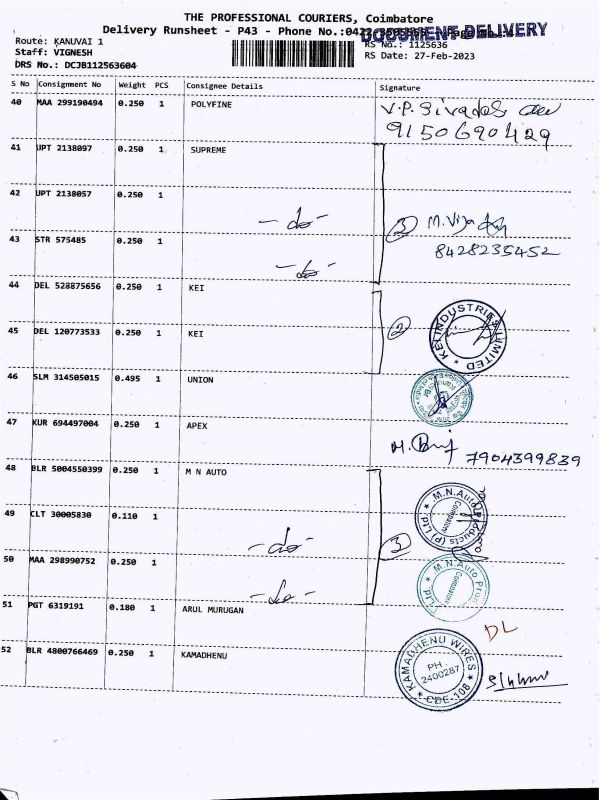 THE PROFESSIONAL COURIERS, Coimbatore
Delivery Runsheet - P43 - Phone No.:0422
DOCUMENT DELIVERY
Route: KANUVAI 1
Staff: VIGNESH
DRS No.: DCJB112563604
RS No.: 1125636
RS Date: 27-Feb-2023
S No Consignment No Weight PCS Consignee Details Signature
40 MAA 299190494 0.250 1 POLYFINE
9150690429
41 UPT 2138097 0.250 1 SUPREME
42 UPT 2138057 0.250 1
-do- 3 M. Vija
43 STR 575485 0.250 1
8428235452
-do-
44 DEL 528875656 0.250 1 KEI
2 KEI INDUSTRIES LIMITED
45 DEL 120773533 0.250 1 KEI
46 SLM 314505015 0.495 1 UNION
47 KUR 694497004 0.250 1 APEX
7904399839
48 BLR 5004550399 0.250 1 M N AUTO
M.N.Auto Products (P) Ltd
49 CLT 30005830 0.110 1
-do- 3
50 MAA 298990752 0.250 1
M.N.Auto Pro Ltd
-do-
51 PGT 6319191 0.180 1 ARUL MURUGAN
DL
52 BLR 4800766469 0.250 1 KAMADHENU
KAMADHENU WIRES
PH
2400287
CBE-108